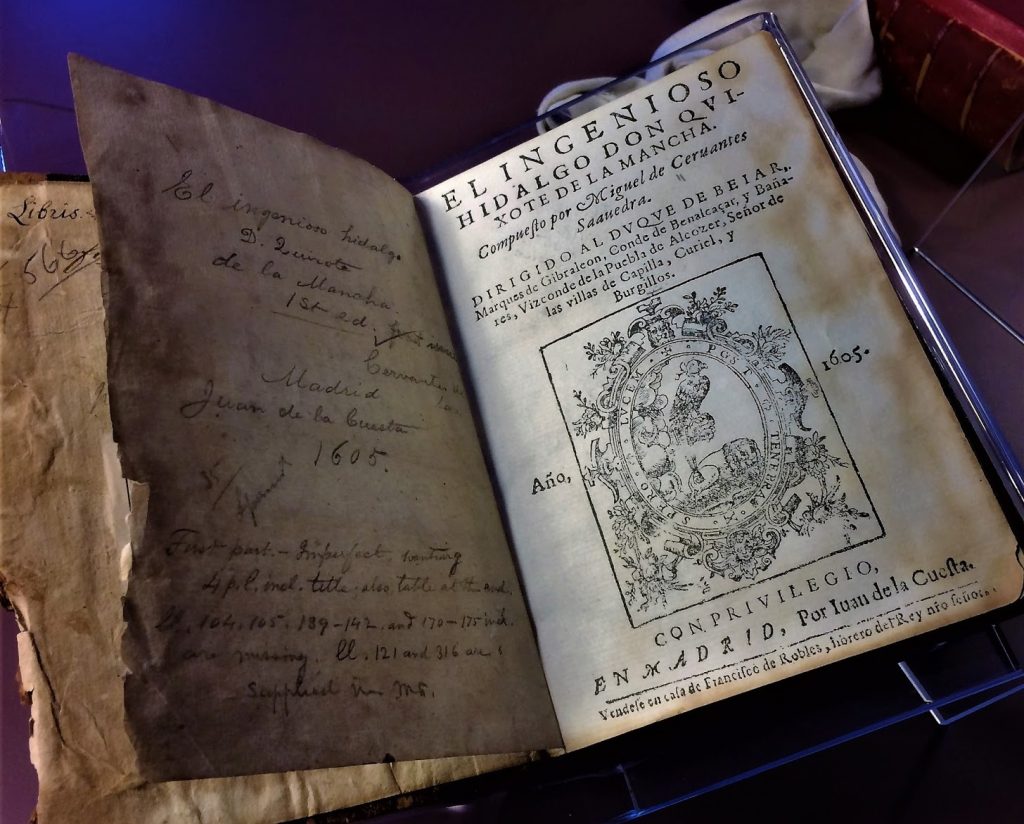 Libris.
566
El ingenioso hidalgo
D. Quixote
de la Mancha
1st ed.
Cervantes
Madrid
Juan de la Cuesta
1605.
First part. - Imperfect, wanting
4 p.l. incl. title, also table at the end.
ll. 104, 105, 139-142, and 170-175 incl.
are missing. ll. 121 and 316 are
supplied in ms.
EL INGENIOSO
HIDALGO DON QVI-
XOTE DE LA MANCHA.
Compuesto por Miguel de Ceruantes
Saauedra.
DIRIGIDO AL DVQVE DE BEIAR,
Marques de Gibraleon, Conde de Benalcaçar, y Baña-
res, Vizconde de la Puebla de Alcozer, Señor de
las villas de Capilla, Curiel, y
Burgillos.
Año, 1605.
SPERO LVCEM
POST TENEBRAS
CON PRIVILEGIO,
EN MADRID, Por Iuan de la Cuesta.
Vendese en casa de Francisco de Robles, librero del Rey nro señor.